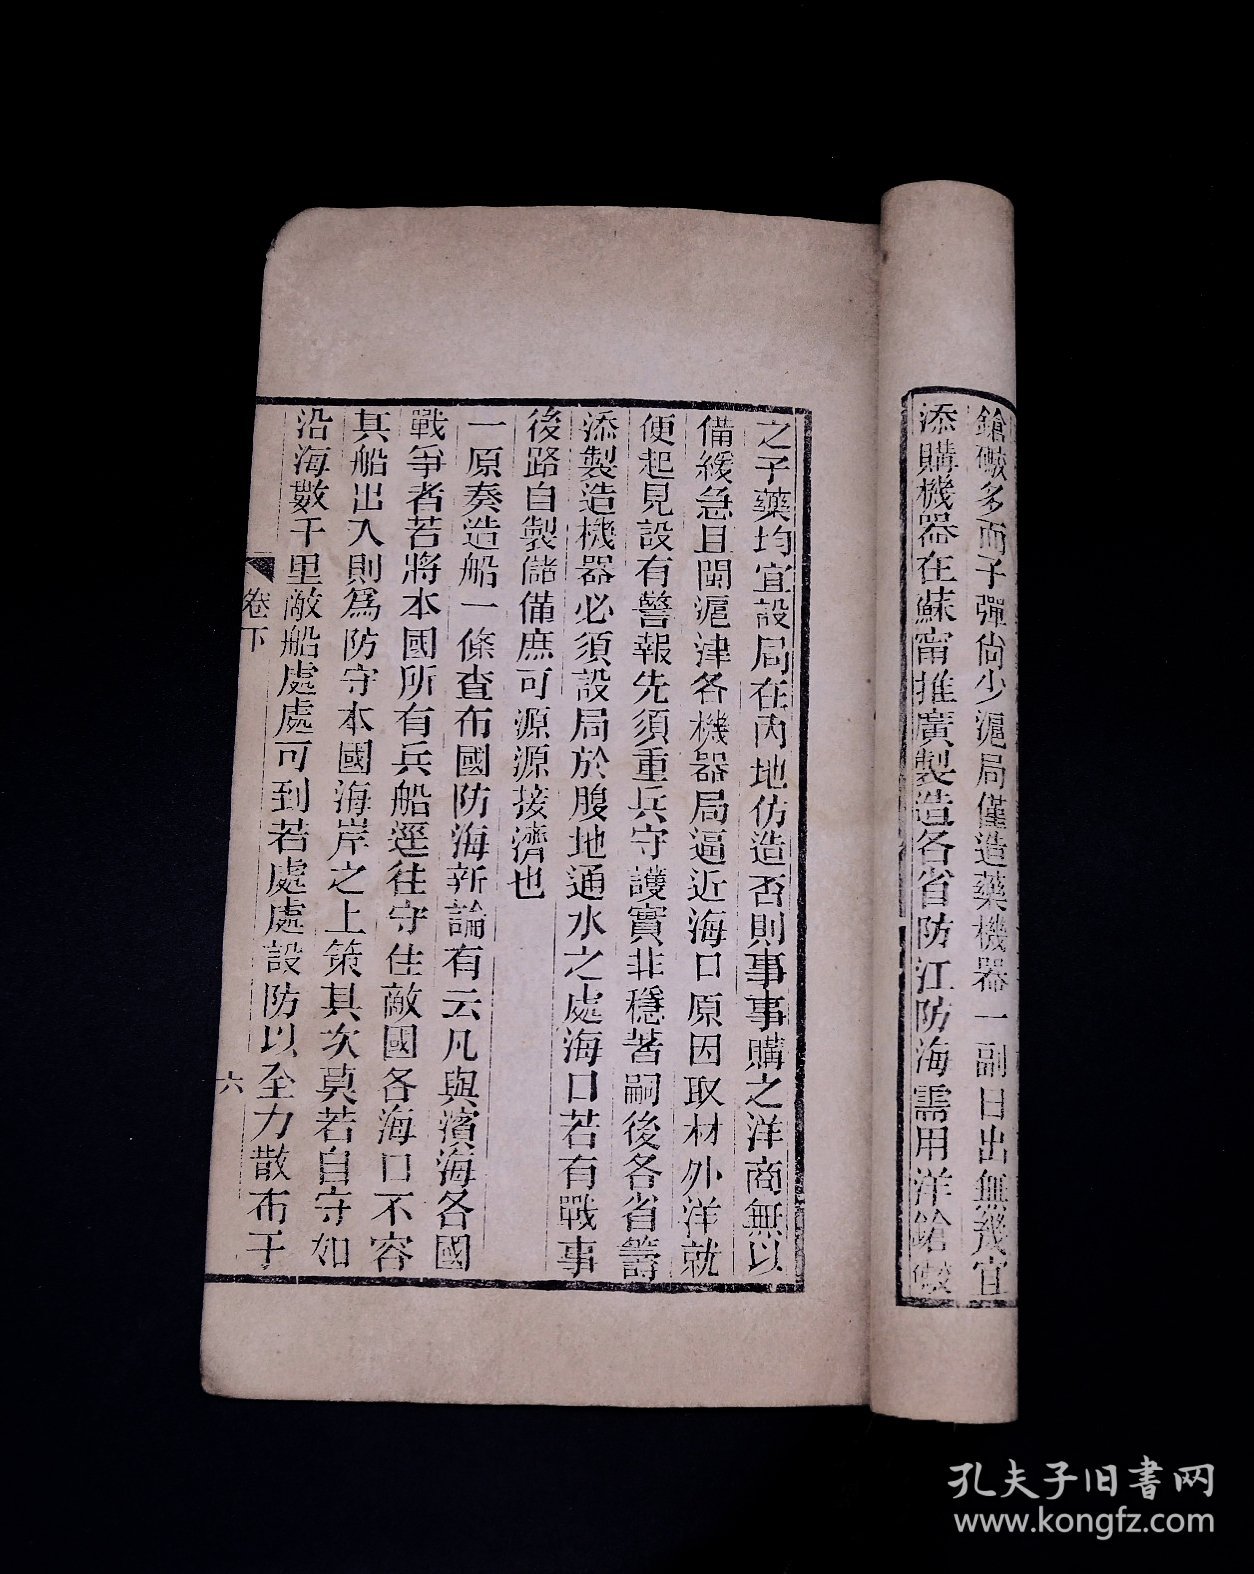 鎗礮多而子彈尙少滬局僅造藥機器一副日出無幾宜
添購機器在蘇甯推廣製造各省防江防海需用洋鎗礮
之子藥均宜設局在內地仿造否則事事購之洋商無以
備緩急且閩滬津各機器局逼近海口原因取材外洋就
便起見設有警報先須重兵守護實非穩著嗣後各省籌
添製造機器必須設局於腹地通水之處海口若有戰事
後路自製儲備庶可源源接濟也
一原奏造船一條查布國防海新論有云凡與濱海各國
戰爭者若將本國所有兵船逕往守住敵國各海口不容
其船出入則爲防守本國海岸之上策其次莫若自守如
沿海數千里敵船處處可到若處處設防以全力散布于
卷下
六
孔夫子旧书网
www.kongfz.com